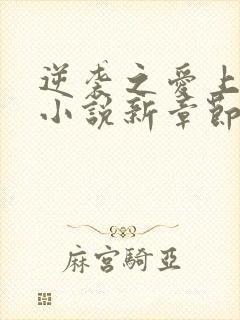 逆袭之愛上
小說新章節
麻宮騎亞